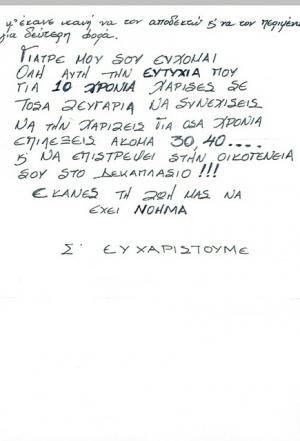 μ' έκανε ικανή να τον αποδεχτώ & να τον περιμένω
για δεύτερη φορά.
ΓΙΑΤΡΕ ΜΟΥ ΣΟΥ ΕΥΧΟΜΑΙ
ΟΛΗ ΑΥΤΗ ΤΗΝ ΕΥΤΥΧΙΑ ΠΟΥ
ΓΙΑ 10 ΧΡΟΝΙΑ ΧΑΡΙΣΕΣ ΣΕ
ΤΟΣΑ ΖΕΥΓΑΡΙΑ ΝΑ ΣΥΝΕΧΙΣΕΙΣ
ΝΑ ΤΗΝ ΧΑΡΙΖΕΙΣ ΓΙΑ ΟΣΑ ΧΡΟΝΙΑ
ΕΠΙΛΕΞΕΙΣ ΑΚΟΜΑ 30, 40....
& ΝΑ ΕΠΙΣΤΡΕΨΕΙ ΣΤΗΝ ΟΙΚΟΓΕΝΕΙΑ
ΣΟΥ ΣΤΟ ΔΕΚΑΠΛΑΣΙΟ !!!
ΕΚΑΝΕΣ ΤΗ ΖΩΗ ΜΑΣ ΝΑ
ΕΧΕΙ ΝΟΗΜΑ
Σ' ΕΥΧΑΡΙΣΤΟΥΜΕ